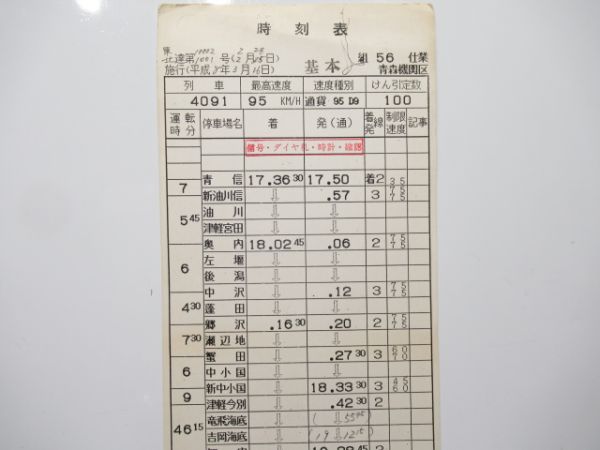 時刻表
東
北達第 10002 1001 号 (2 2月 28 25日)
施行(平成8年3月16日)
基本
組 56 仕業
青森機関区
列車 最高速度 速度種別 けん引定数
4091 95 KM/H 通貨 95 D9 100
運転時分 停車場名 着 発(通) 着発線 制限速度 記事
・ダイヤ・時計・確認
青信 17.36 30 17.50 着2 35 75
7
新油川信 ⇩ .57 3 75 75
油川 ⇩ ⇩
5 45
津軽宮田 ⇩ ⇩
奥内 18.02 45 .06 2 75 75
左堰 ⇩ ⇩
6
後潟 ⇩ ⇩
中沢 ⇩ .12 3 75 75
4 30
蓬田 ⇩ ⇩
郷沢 .16 30 .20 2 75 75
7 30
瀬辺地 ⇩ ⇩
蟹田 ⇩ .27 30 3 60 70
6
中小国 ⇩ ⇩
新中小国 ⇩ 18.33 30 3 45 60
9
津軽今別 ⇩ .42 30 2
46 15
竜飛海底 ⇩ ( ⇩ 55 45)
吉岡海底 ⇩ (19 ⇩ 12 15)